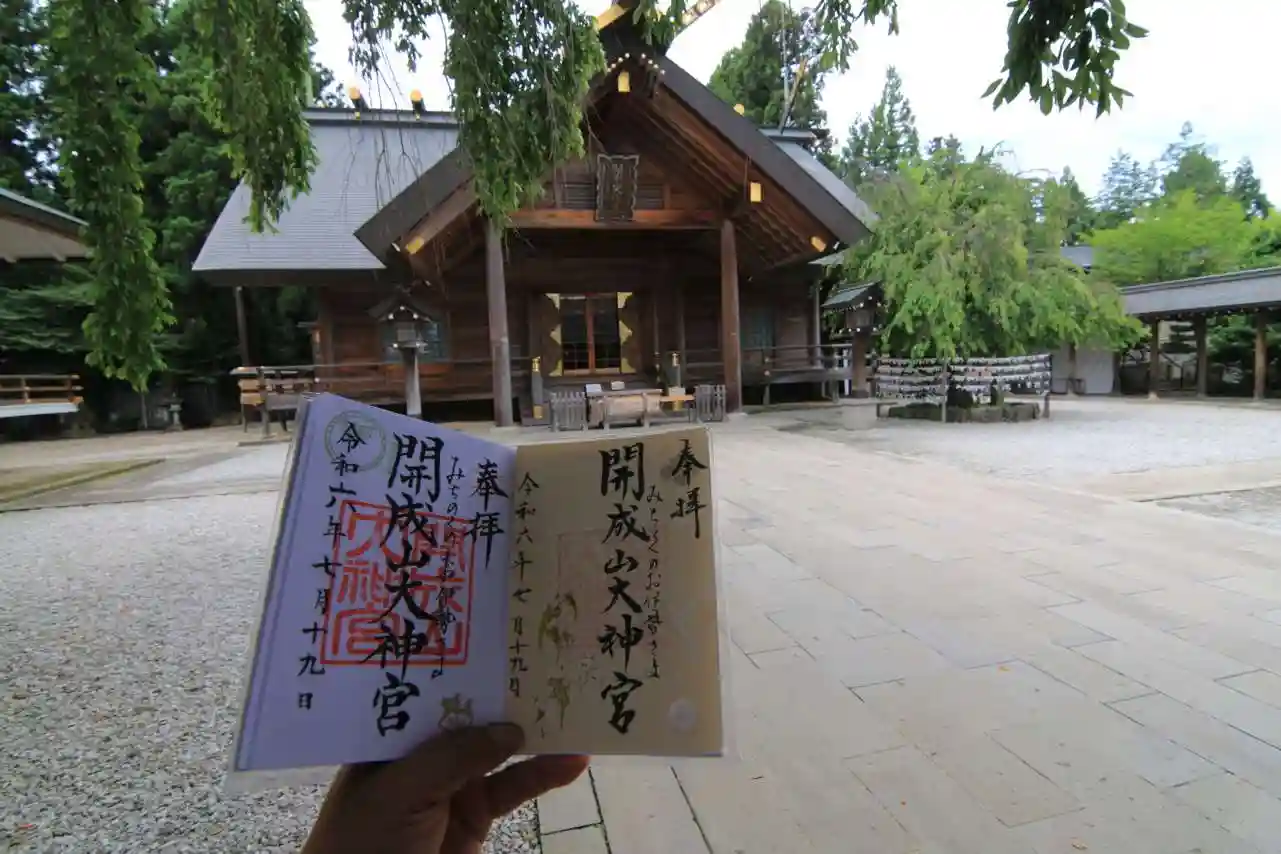 奉拝
みちのくのお伊勢さま
開成山大神宮
令和六年七月十九日
奉拝
みちのくのお伊勢さま
開成山大神宮
令和六年七月十九日
開成山
大神宮